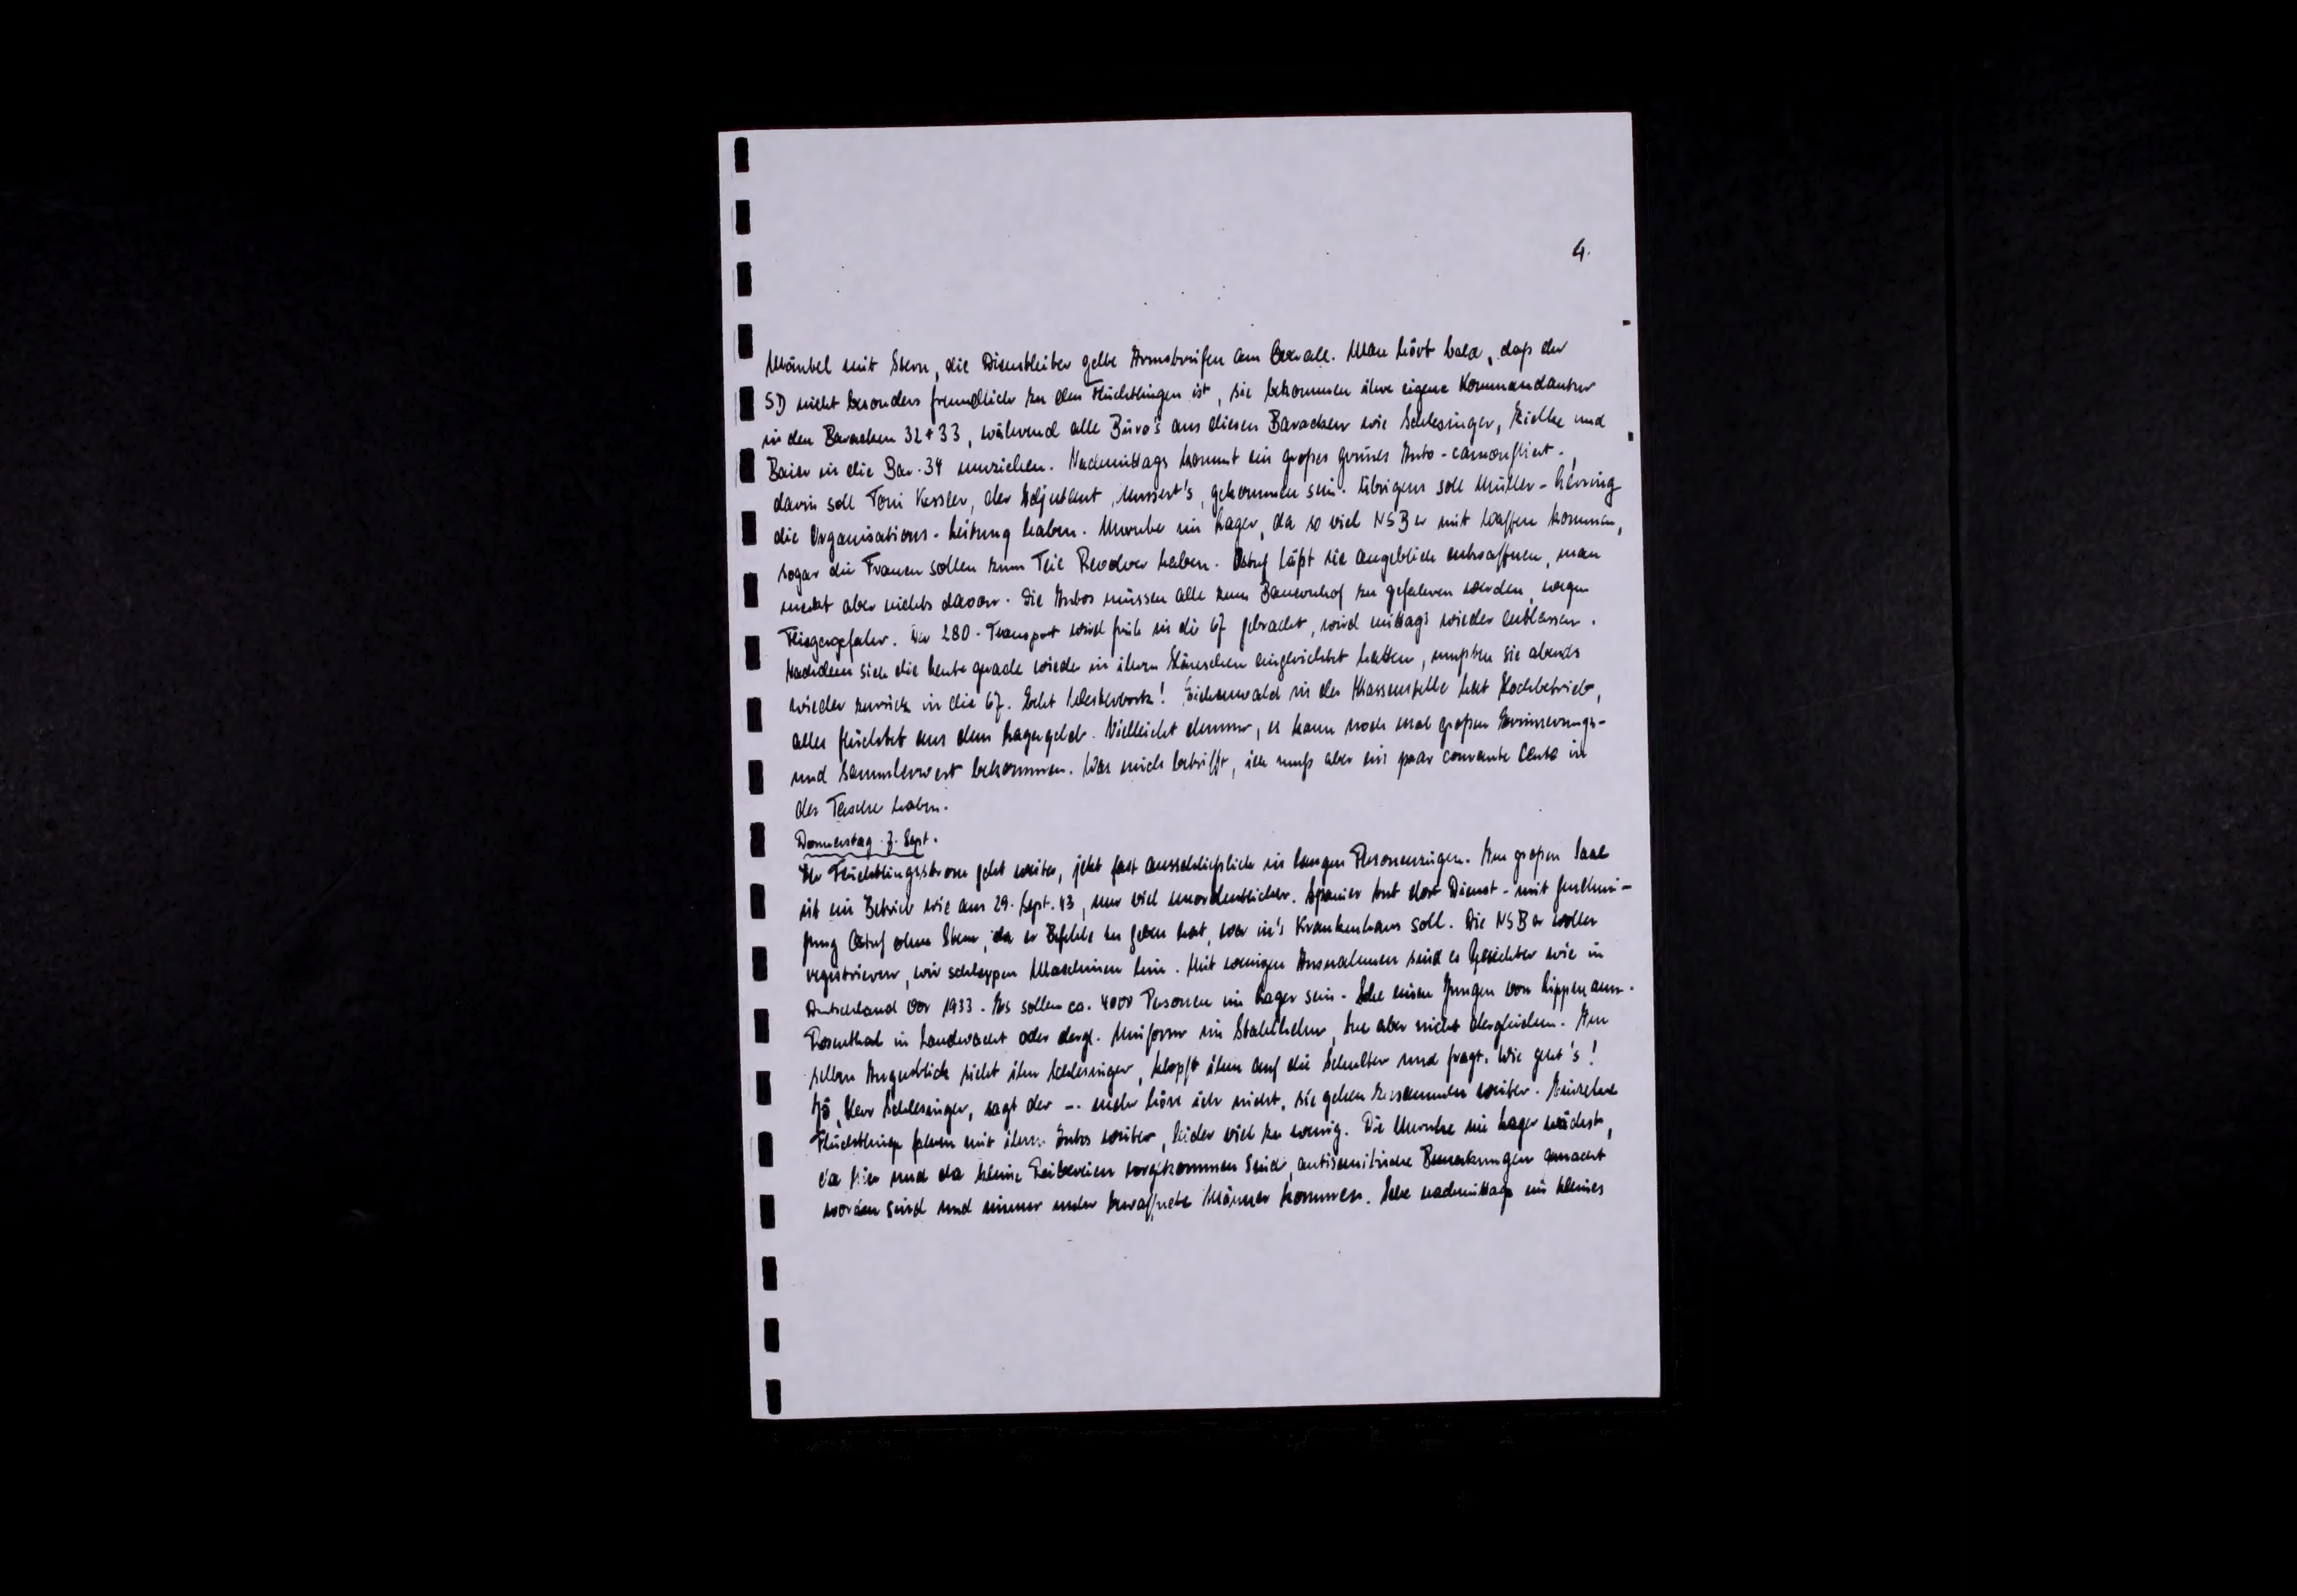 4.
Mäntel mit Stern, die Dienstleiter gelbe Armstreifen am Overall. Man hört bald, daß der
SD nicht besonders freundlich zu den Flüchtlingen ist, sie bekommen ihre eigene Kommandantur
in den Baracken 32 + 33, während alle Büro's aus diesen Baracken wie Schlesinger, und
Baier in die Bar. 34 umziehen. Nachmittags kommt ein großes grünes Auto - camoufliert -,
darin soll Toni Kessler, der Adjutant Mussert's, gekommen sein. Übrigens soll Müller - Herring
die Organisations - Leitung haben. Unruhe im Lager, da so viel NSB er mit Waffen kommen,
sogar die Frauen sollen zum Teil Revolver haben. Ostuf läßt sie angeblich entwaffnen, man
merkt aber nichts davon. Die Autos müssen alle zum Bauernhof zu gefahren werden, wegen
Fliegergefahr. Der 280 - Transport wird früh in die 67 gebracht, wird mittags wieder entlassen.
Nachdem sich die Leute gerade wieder in ihren Häuschen eingerichtet hatten, mußten sie abends
wieder zurück in die 67. Echt Westerbork! Eichenwald in der Kassenstelle hat Hochbetrieb,
alles flüchtet aus dem Lagergeld. Vielleicht dumm, es kann noch mal großen Erinnerungs-
und Sammlerwert bekommen. Was mich betrifft, ich muß aber ein paar courante Cents in
der Tasche haben.
Donnerstag. 7. Sept.
Der Flüchtlingsstrom geht weiter, jetzt fast ausschließlich in langen Personenzügen. Im großen Saal
ist ein Betrieb wie am 29. Sept. 43, nur viel unordentlicher. Spanier tut dort Dienst - mit Genehmi-
gung Ostuf ohne Stern, da er Befehle zu geben hat, wer in's Krankenhaus soll. Die NSB er wollen
registrieren, wir schleppen Maschinen hin. Mit wenigen Ausnahmen sind es Gesichter wie in
Deutschland vor 1933. Es sollen ca. 4000 Personen im Lager sein. Sehe einen Jungen von Lippmann-
Rosenthal in Landwacht oder dergl. Uniform im Stahlhelm, tue aber nicht dergleichen. Im
selben Augenblick sieht ihn Schlesinger, klopft ihm auf die Schulter und fragt. Wie geht's!
Jô, Herr Schlesinger, sagt der -. mehr höre ich nicht, sie gehen zusammen weiter. Einzelne
Flüchtlinge fahren mit ihren Autos weiter, leider viel zu wenig. Die Unruhe im Lager wächst,
da hier und da kleine Reibereien vorgekommen sind, antisemitische Bemerkungen gemacht
worden sind und immer mehr bewaffnete Männer kommen. Sehe nachmittags ein kleines